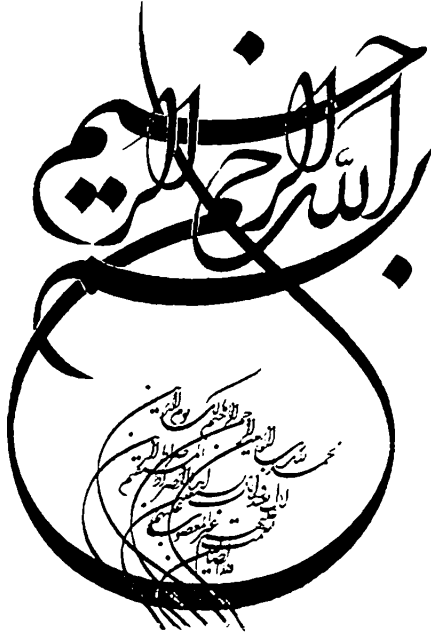 بسم الله الرحمن الرحیم
الحمد لله رب العالمین
الرحمن الرحیم مالک یوم الدین
ایاک نعبد وایاک نستعین
اهدنا الصراط المستقیم
صراط الذین انعمت علیهم
غیر المغضوب علیهم
ولا الضالین